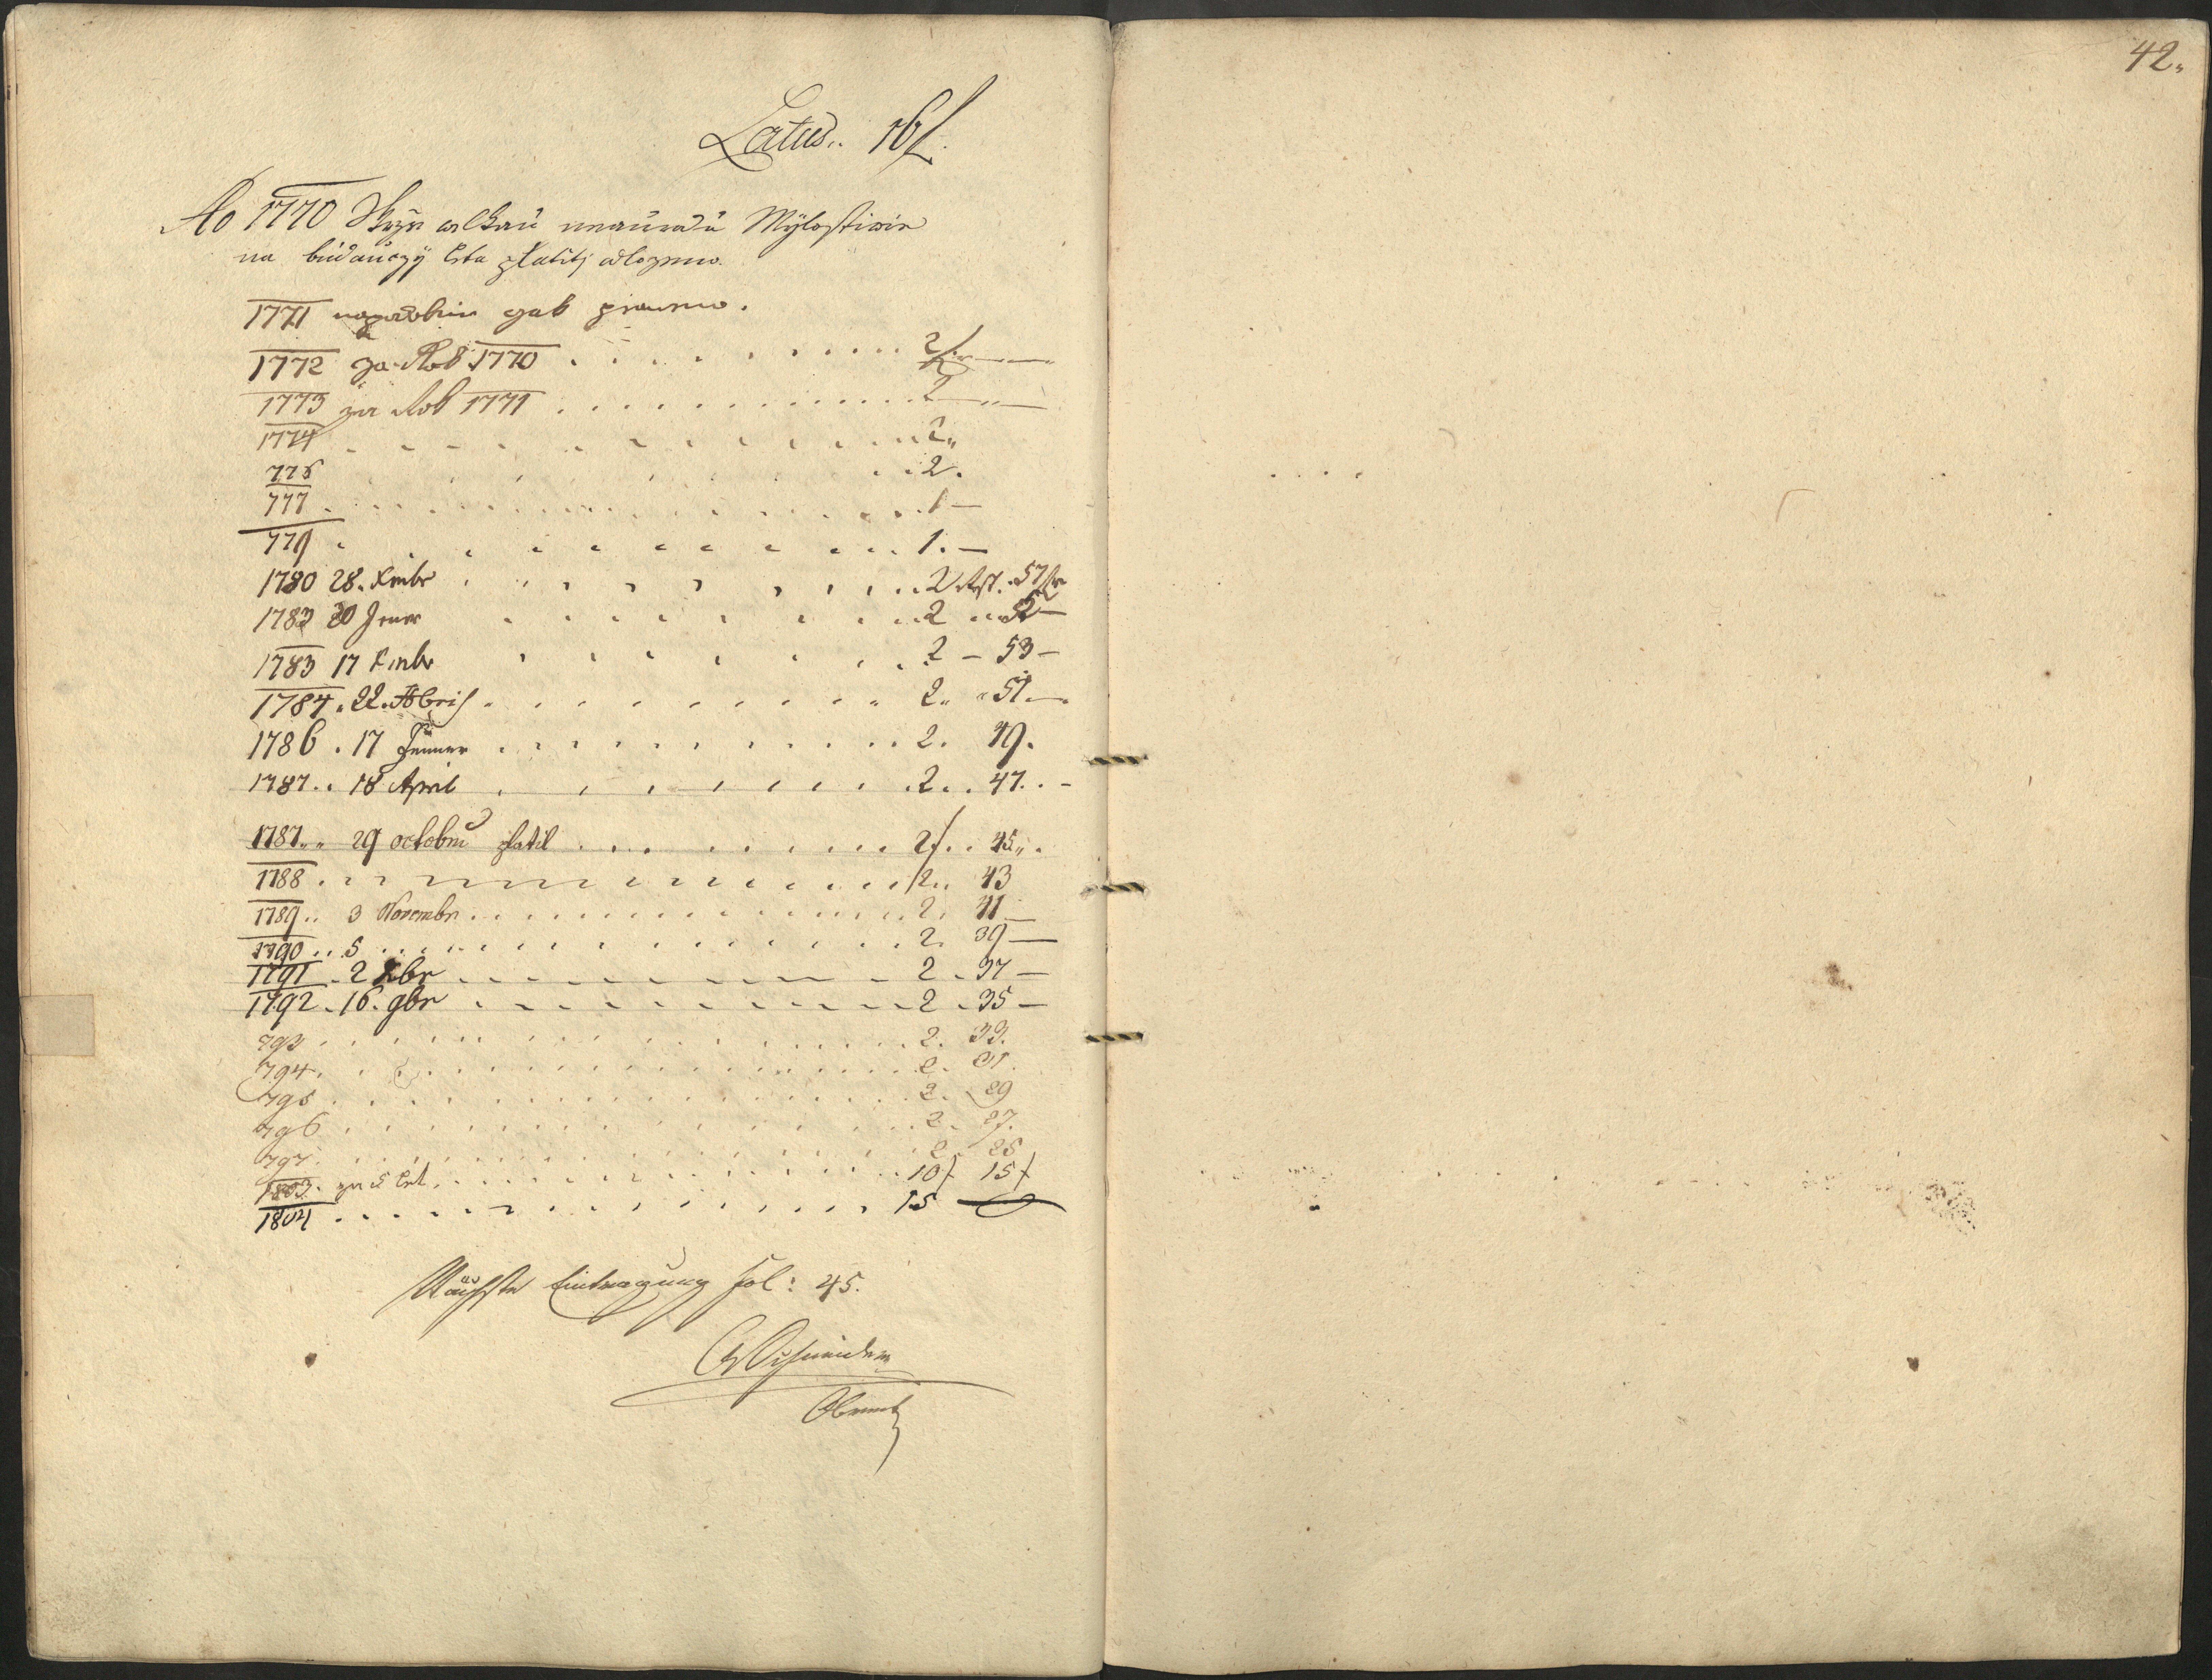 42.
Latus.. 16f.
Ao 1770 Skrze welkau neaurodu Mylostiwie
na budauczy Leta platiti odlozeno.
1771 napodobnie gak praweno.
1772 za Rok 1770 . . . . . . . . . . 2f
1773 za Rok 1771 . . . . . . . . . . 2 „ —
1774 . . . . . . . . . . 2„
776 . . . . . . . . . . 2.
777 . . . . . . . . . . 1 —
779 . . . . . . . . . . 1. —
1780 28. Xmbr . . . . . . . . . . 2 Rst. 57
1782 20 Jener . . . . . . . . . . 2 „
1783 17 Xmbr . . . . . . . . . . 2 — 53 —
1784. 22. . . . . . . . . . . 2„ „ 51. —
1786. 17 Jenner . . . . . . . . . . 2. 49.
1787.. 18 April . . . . . . . . . . 2.. 47.. -
1787.. 29 octobris platil . . . . . . . . . . 2f.. 45„.
1788 . . . . . . . . . . 2.. 43
1789.. 3 Novembr. . . . . . . . . . . 2. 41 —
1790.. 5 . . . . . . . . . . 2. 39 —
1791. 2 Xbr . . . . . . . . . . 2. 37 —
1792. 16. 9br . . . . . . . . . . 2. 35 —
793 . . . . . . . . . . 2. 33.
794. . . . . . . . . . . 2. 31.
795 . . . . . . . . . . 2. 29
796 . . . . . . . . . . 2. 27.
797. . . . . . . . . . . 2. 25
1803. za 5 let. . . . . . . . . . . 10f 15f
1804 . . . . . . . . . . 15 —
Nächste Eintragung fol: 45.